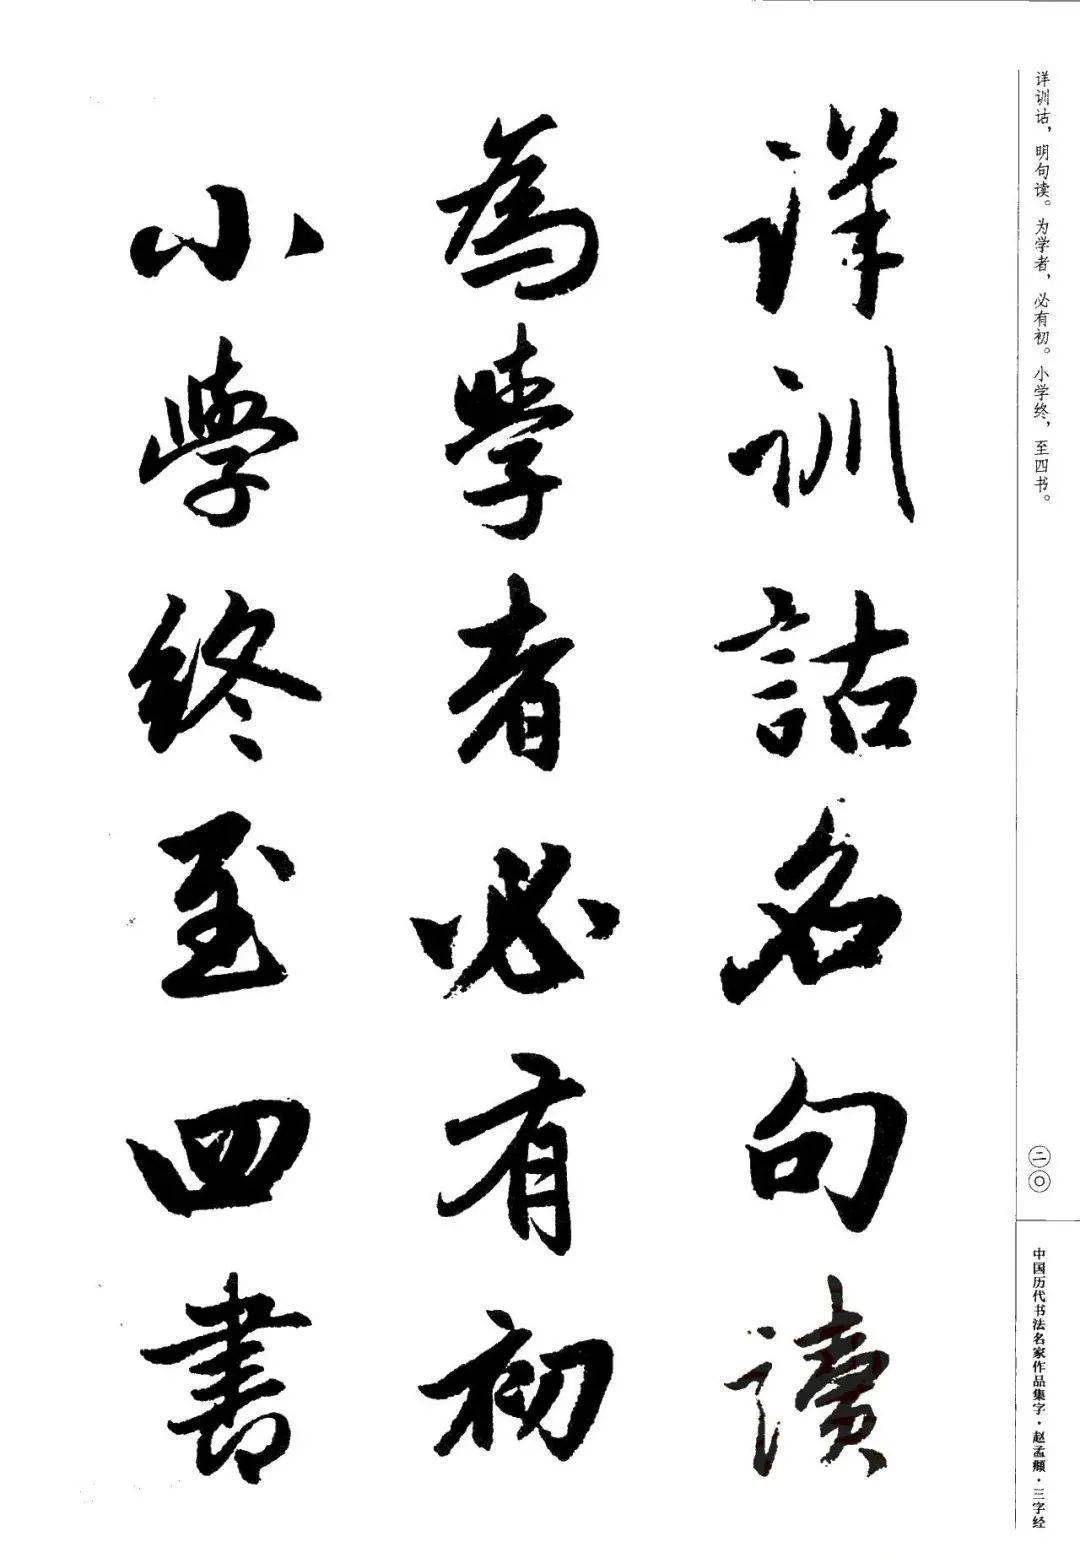 详训诂，明句读。为学者，必有初。小学终，至四书。
詳訓詁名句讀
為學者必有初
小學終至四書
二〇
中国历代书法名家作品集字·赵孟頫·三字经